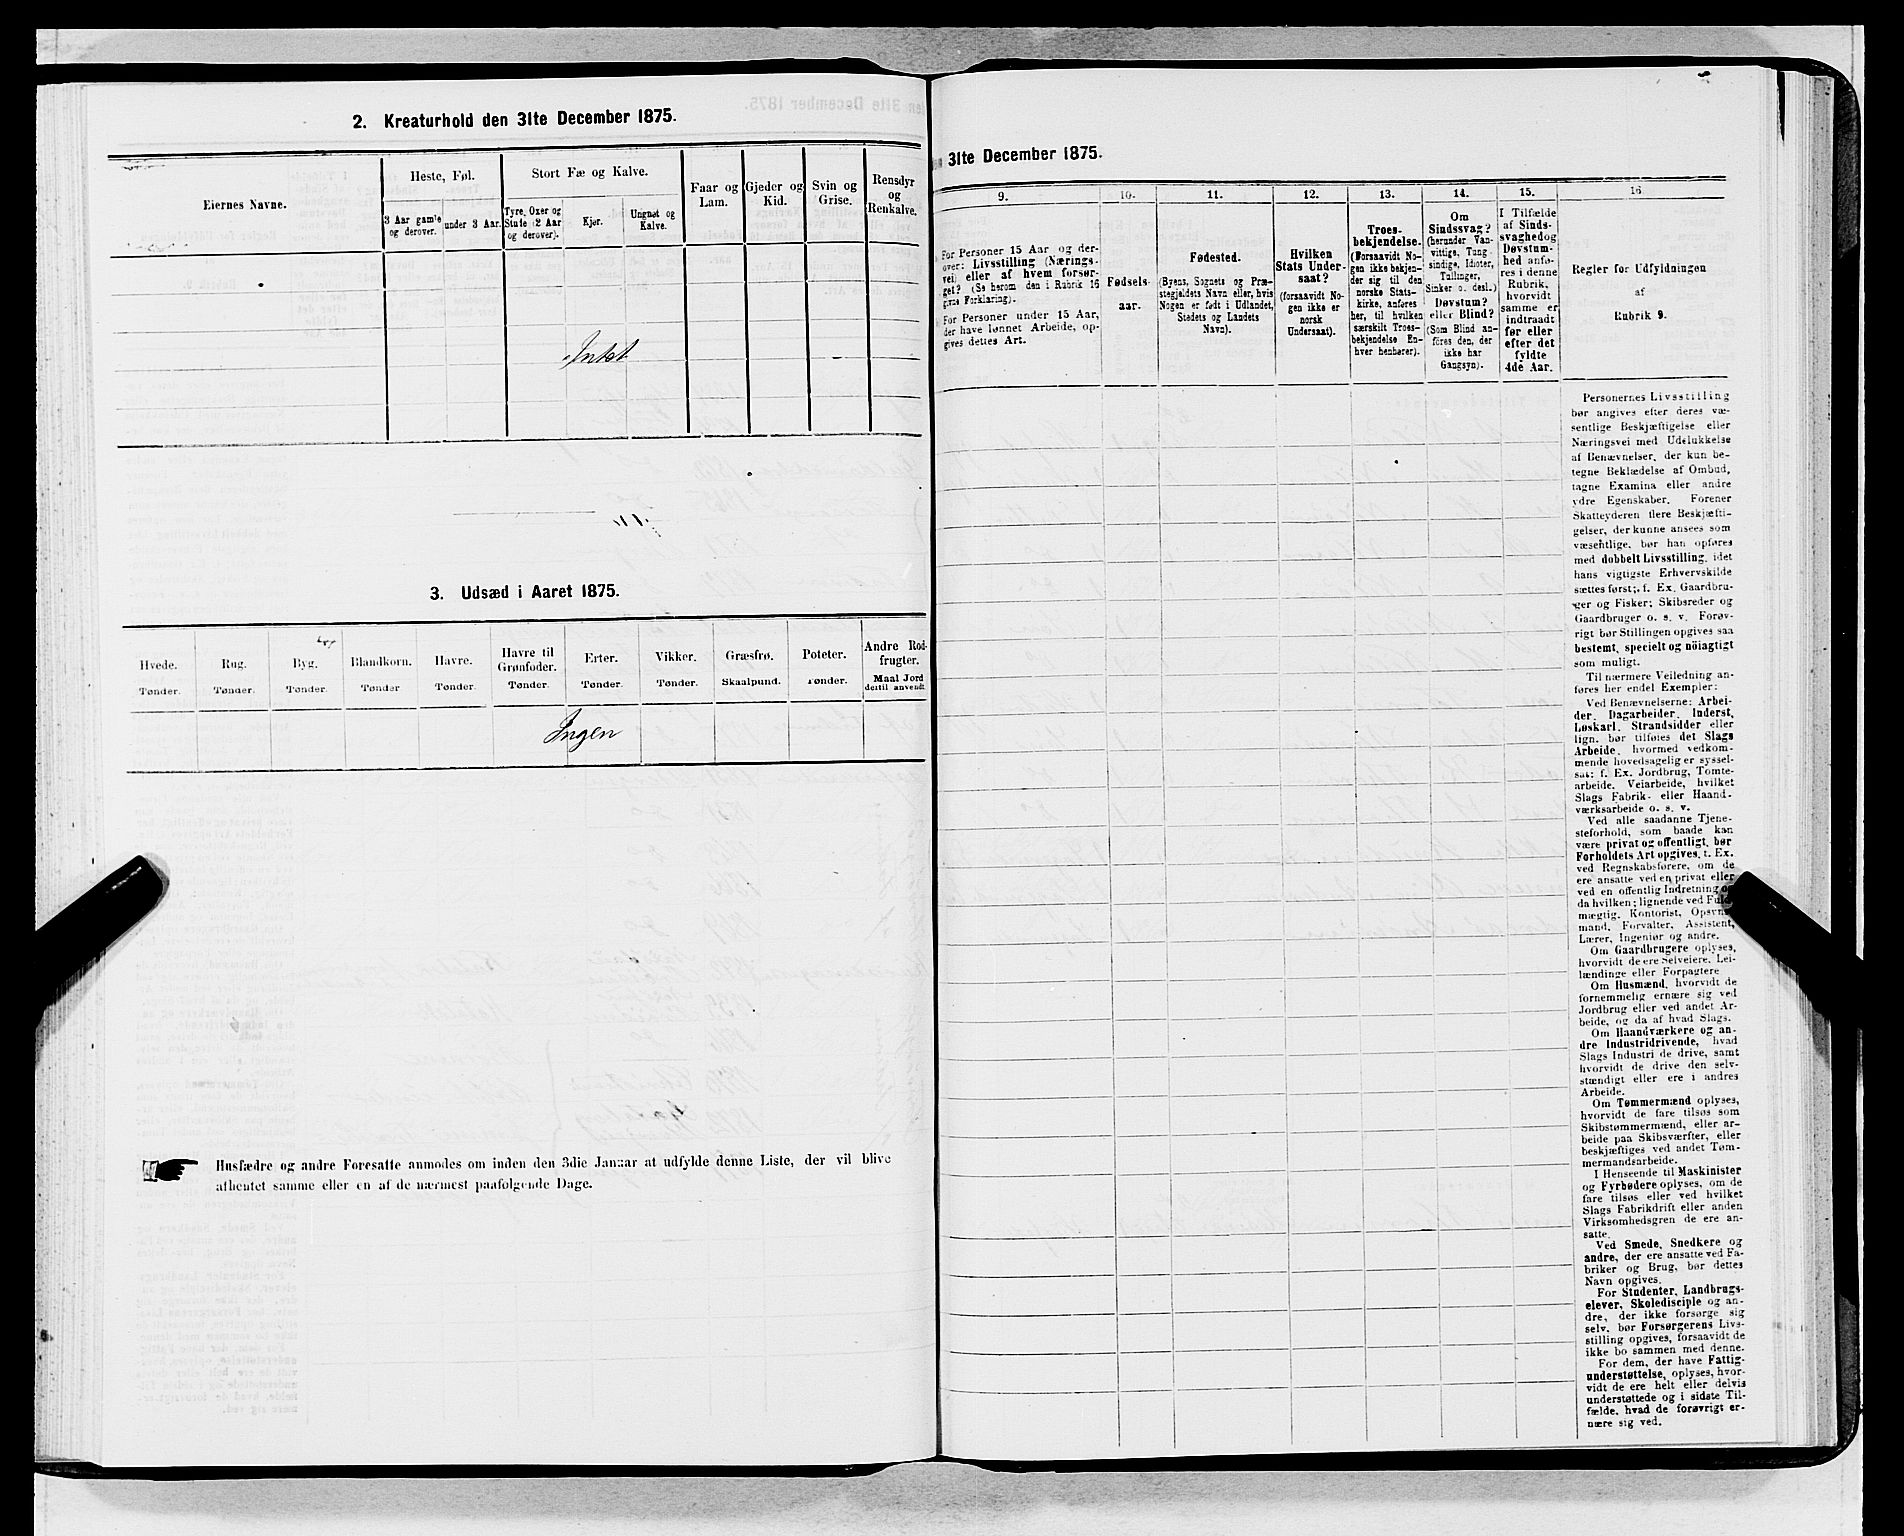 2. Kreaturhold den 31te December 1875.
Eiernes Navne.
Heste, Føl.
3 Aar gamle
og derover.
under 3 Aar.
Stort Fæ og Kalve.
Tyre, Oxer og
Stude (2 Aar
og derover).
Kjør.
Ungnøt og
Kalve.
Faar og
Lam.
Gjeder og
Kid.
Svin og
Grise.
Rensdyr
og
Renkalve.
Intet
3. Udsæd i Aaret 1875.
Hvede.
Tønder.
Rug.
Tønder.
Byg.
Tønder.
Blandkorn.
Tønder
Havre.
Tønder.
Havre til
Grønfoder.
Tønder.
Erter.
Tønder.
Vikker.
Tønder.
Græsfrø.
Skaalpund.
Poteter.
Tønder.
Andre Rod-
frugter.
Maal Jord
dertil anvendt
Ingen
Husfædre og andre Foresatte anmodes om inden den 3die Januar at udfylde denne Liste, der vil blive
afhentet samme eller en af de nærmest paafølgende Dage.
31te December 1875.
9.
For Personer 15 Aar og der-
over: Livsstilling (Nærings-
vei) eller af hvem forsør-
get? (Se herom den i Rubrik 16
givne Forklaring).
For Personer under 15 Aar,
der have lønnet Arbeide, op-
gives dettes Art.
10.
Fødsels-
aar.
11.
Fødested.
(Byens, Sognets og Præ-
stegjeldets Navn eller, hvis
Nogen er født i Udlandet,
Stedets og Landets
Navn).
12.
Hvilken
Stats Under-
saat?
(forsaavidt No-
gen ikke er
norsk
Undersaat).
13.
Troes-
bekjendelse.
(Forsaavidt No-
gen ikke bekjen-
der sig til den
norske Stats-
kirke, anføres
her, til hvilken
særskilt Troes-
bekjendelse En-
hver henhører).
14.
Om
Sindssvag?
(herunder Van-
vittige, Tung-
sindige, Idioter,
Tullinger,
Sinker o. desl.)
Døvstum?
eller Blind?
(Som Blind an-
føres den, der
ikke har
Gangsyn).
15.
I Tilfælde
af Sinds-
svaghed og
Døvstum-
hed anfø-
res i denne
Rubrik,
hvorvidt
samme er
indtraadt
før eller
efter det
fyldte
4de Aar.
16
Regler for Udfyldningen
af
Rubrik 9.
Personernes Livsstilling
bør angives efter deres væ-
sentlige Beskjæftigelse eller
Næringsvei med Udelukkelse
af Benævnelser, der kun be-
tegne Beklædelse af Ombud,
tagne Examina eller andre
ydre Egenskaber. Forener
Skatteyderen flere Beskjæfti-
gelser, der kunne ansees som
væsentlige, bør han opføres
med dobbelt Livsstilling, idet
hans vigtigste Erhvervskilde
sættes først; f. Ex. Gaardbru-
ger og Fisker; Skibsreder og
Gaardbruger o. s. v. Forøv-
rigt bør Stillingen opgives saa
bestemt, specielt og nöiagtigt
som muligt.
Til nærmere Veiledning an-
føres her endel Exempler:
Ved Benævnelserne: Arbei-
der, Dagarbeider, Inderst,
Løskarl, Strandsidder eller
lign. bør tilføies det Slags
Arbeide, hvormed vedkom-
mende hovedsagelig er syssel-
sat; f. Ex. Jordbrug, Tomte-
arbeide, Veiarbeide, hvilket
Slags Fabrik- eller Haand-
værksarbeide o. s. v.
Ved alle saadanne Tjene-
steforhold, som baade kan
være privat og offentligt, bør
Forholdets Art opgives, f. Ex.
ved Regnskabsførere, om de
ere ansatte ved en privat eller
ved en offentlig Indretning og
da hvilken; lignende ved Fuld-
mægtig, Kontorist, Opsyns-
mand, Forvalter, Assistent,
Lærer, Ingeniør og andre.
Om Gaardbrugere oplyses,
hvorvidt de ere Selveiere, Lei-
lændinge eller Forpagtere
Om Husmænd, hvorvidt de
fornemmelig ernære sig ved
Jordbrug eller ved andet Ar-
beide, og da af hvad Slags.
Om Haandværkere og an-
dre Industridrivende, hvad
Slags Industri de drive, samt
hvorvidt de drive den selv-
stændigt eller ere i andres
Arbeide.
Om Tømmermænd oplyses,
hvorvidt de fare tilsøs som
Skibstømmermænd, eller ar-
beide paa Skibsværfter, eller
beskjæftiges ved andet Tøm-
mermandsarbeide.
I Henseende til Maskinister
og Fyrbødere oplyses, om de
fare tilsøs eller ved hvilket
Slags Fabrikdrift eller anden
Virksomhedsgren de ere an-
satte.
Ved Smede, Snedkere og
andre, der ere ansatte ved Fa-
briker og Brug, bør dettes
Navn opgives.
For Studenter, Landbrugs-
elever, Skoledisciple og an-
dre, der ikke forsørge sig
selv, bør Forsørgerens Livs-
stilling opgives, forsaavidt de
ikke bo sammen med denne.
For dem, der have Fattig-
understøttelse, oplyses, hvor-
vidt de ere helt eller delvis
understøttede og i sidste Til-
fælde, hvad de forøvrigt er-
nære sig ved.